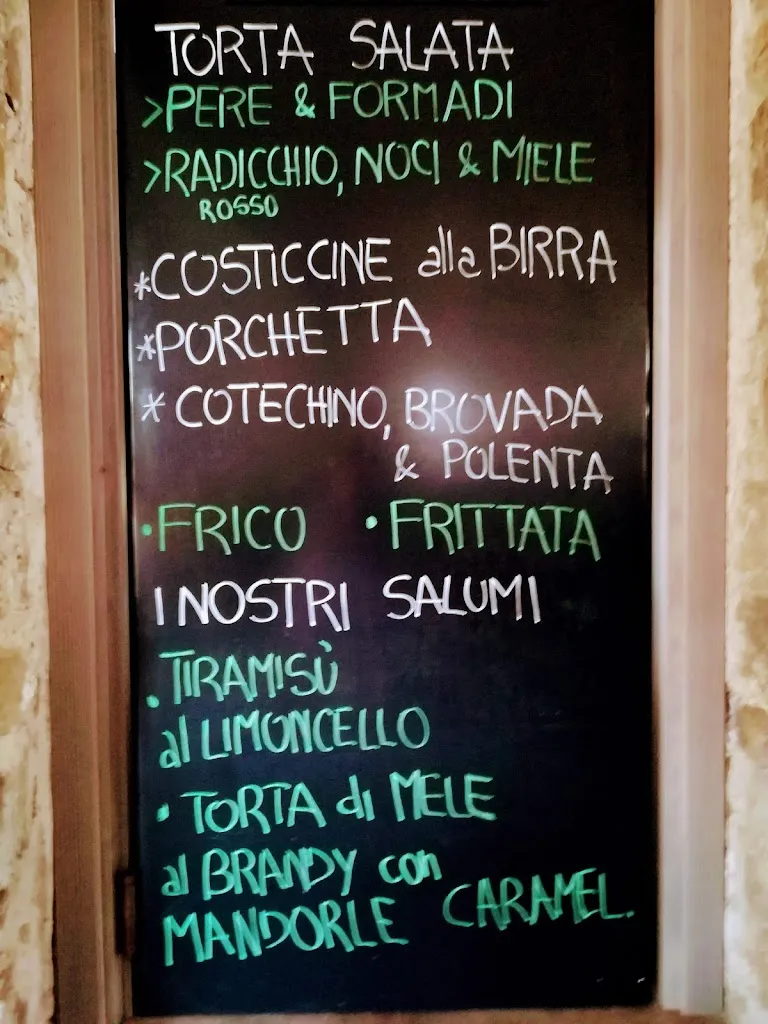 TORTA SALATA
>PERE & FORMADI
>RADICCHIO, NOCI & MIELE
ROSSO
*COSTICCINE alla BIRRA
*PORCHETTA
* COTECHINO, BROVADA
& POLENTA
•FRICO •FRITTATA
I NOSTRI SALUMI
•TIRAMISÙ
al LIMONCELLO
• TORTA di MELE
al BRANDY con
MANDORLE CARAMEL.